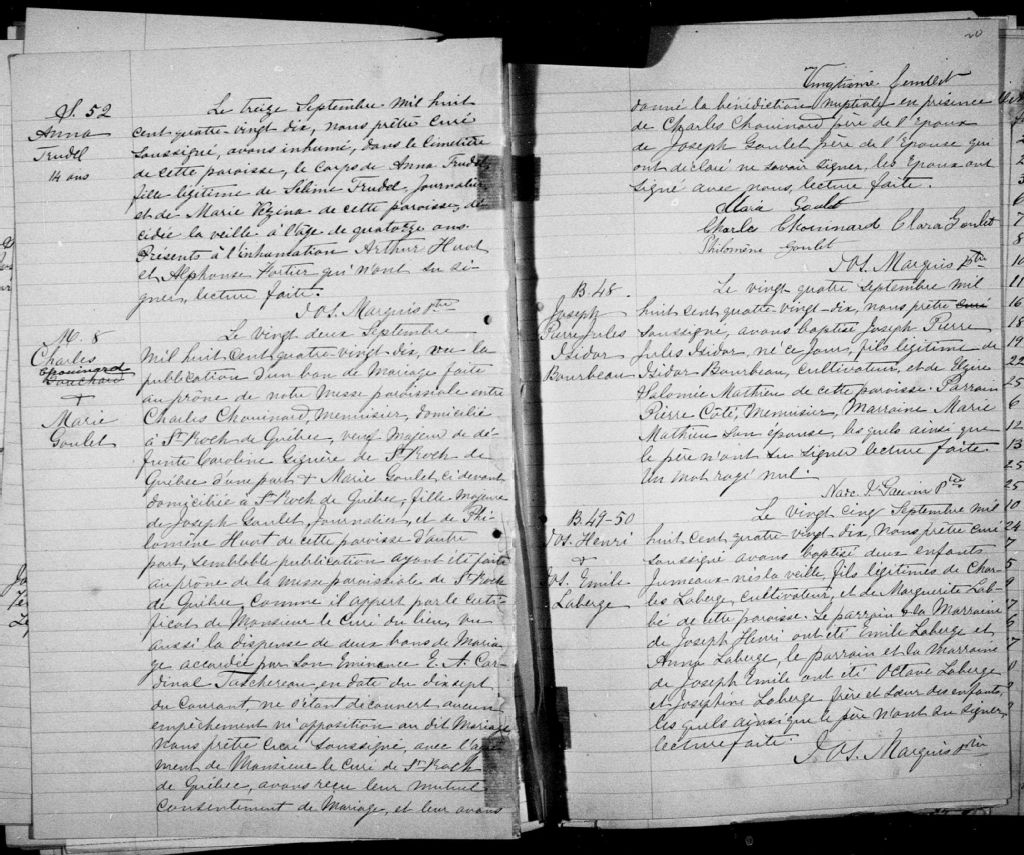 S. 52
Anna
Trudel
14 ans
Le treize Septembre mil huit
cent quatre vingt dix, nous prêtre curé
soussigné, avons inhumé, dans le Cimetière
de cette paroisse, le corps de Anna Trudel
fille légitime de Trudel, Journalier
et de Marie Vézina de cette paroisse, dé-
cidée la veille à l'âge de quatorze ans
Présents à l'inhumation Arthur Huot
et Alphonse Fortier qui n'ont su si-
gner, lecture faite.
JOS. Marquis Ptre
M. 8
Charles
Chouinard
+
Marie
Goulet
Le vingt deux Septembre
mil huit cent quatre-vingt dix, vu la
publication d'un ban de Mariage faite
au prône de notre Messe paroissiale entre
Charles Chouinard, Menuisier, domicilié
à St Roch de Québec, veuf majeur de dé-
funte Caroline Gignère de St Roch de
Québec d'une part + Marie Goulet, ci devant
domiciliée à St Roch de Québec, fille majeure
de Joseph Goulet, Journalier, et de Phi-
lomène Huot de cette paroisse d'autre
part, semblable publication ayant été faite
au prône de la messe paroissiale de St Roch
de Québec, comme il appert par le certi-
ficat de Monsieur le Curé du lieu, vu
aussi la dispense de deux bans de Maria-
ge accordée par Son Eminance E. A. Car-
dinal Taschereau, en date du dix sept
du Courant, ne s'étant découvert aucun
empêchement ni opposition au dit Mariage
Nous prêtre Curé soussigné, avec l'agré-
ment de Monsieur le Curé de St Roch
de Québec, avons reçu leur mutuel
consentement de Mariage, et leur avons
20
Vingtième feuillet
donné la bénédiction nuptiale en présence
de Charles Chouinard père de l'époux
de Joseph Goulet père de l'épouse qui
ont déclaré ne savoir signer, les Epoux ont
signé avec nous, lecture faite.
Marie Goulet
Charles Chouinnard Clara Goulet
Philomène Goulet
JOS. Marquis Ptre
B. 48.
Joseph
Pierre Jules
Isidor
Bourbeau
Le vingt-quatre Septembre mil
huit cent quatre-vingt-dix, nous prêtre curé
soussigné, avons baptisé Joseph Pierre
Jules Isidor, né ce jour, fils légitime de
Isidor Bourbeau, cultivateur, et de
Mathieu de cette paroisse. Parrain
Pierre Côté, Menuisier, Marraine Marie
Mathieu son épouse, lesquels ainsi que
le père n'ont su signer lecture faite.
Un mot rayé nul.
Narc. J. Gauvin Ptre
B. 49-50
JOS. Henri
+
JOS. Emile
Laberge
Le vingt cinq Septembre mil
huit cent quatre-vingt-dix, nous prêtre curé
soussigné avons baptisé deux enfants
Jumeaux nés la veille, fils légitimes de Char-
les Laberge, cultivateur, et de Marguerite Lab-
bé de cette paroisse. Le parrain & la Marraine
de Joseph Henri ont été Emile Laberge et
Anna Laberge, le parrain et la Marraine
de Joseph Emile ont été Octave Laberge
et Joséphine Laberge frère et sœur des enfants,
lesquels ainsi que le père n'ont su signer,
lecture faite
JOS. Marquis ptre